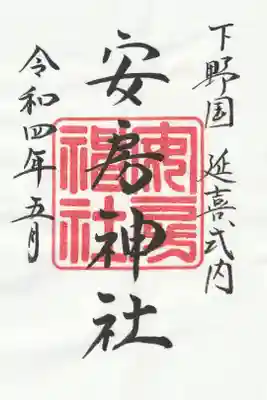 下野国 延喜式内
安房神社
安房神社
令和四年五月